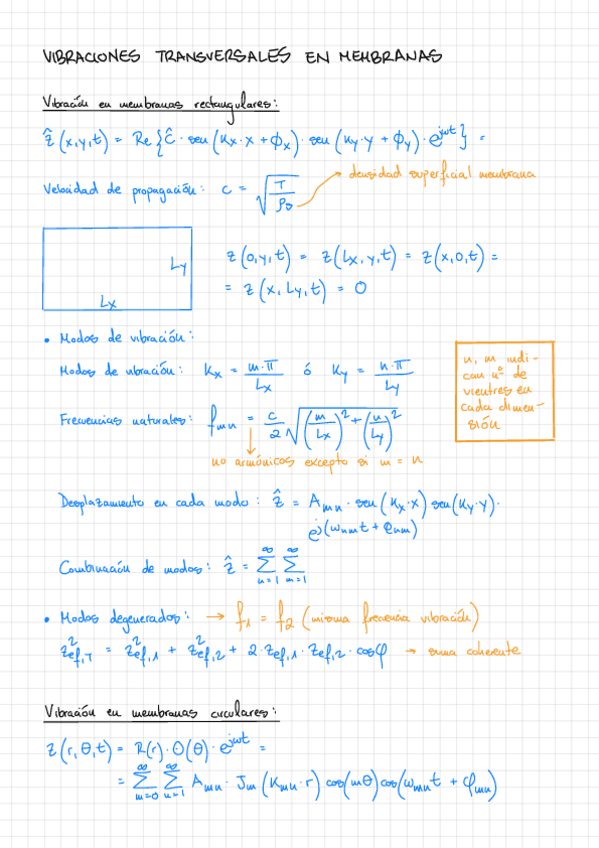 VIBRACIONES TRANSVERSALES EN MEMBRANAS
Vibración en membranas rectangulares:
ẑ(x,y,t) = Re{Ĉ · sen(kx·x + ϕx) · sen(ky·y + ϕy) · e^jωt} =
Velocidad de propagación: c = √(T/ρs) → densidad superficial membrana
z(0,y,t) = z(Lx,y,t) = z(x,0,t) =
= z(x,Ly,t) = 0
Ly
Lx
• Modos de vibración:
Modos de vibración: kx = m·π/Lx ó ky = n·π/Ly
n, m indi-
can nº de
vientres en
cada dimen-
sión
Frecuencias naturales: fmn = c/2 √((m/Lx)² + (n/Ly)²)
no armónicos excepto si m = n
Desplazamiento en cada modo: ẑ = Amn · sen(kx·x) sen(ky·y) ·
e^j(ωnmt + φnm)
Combinación de modos: ẑ = ∑n=1^∞ ∑m=1^∞
• Modos degenerados: → f1 = f2 (misma frecuencia vibración)
z²ef,T = z²ef,1 + z²ef,2 + 2·zef,1·zef,2·cosφ → suma coherente
Vibración en membranas circulares:
z(r,θ,t) = R(r)·Θ(θ)·e^jωt =
= ∑m=0^∞ ∑n=1^∞ Amn · Jm(kmn·r) cos(mθ) cos(ωmnt + φmn)